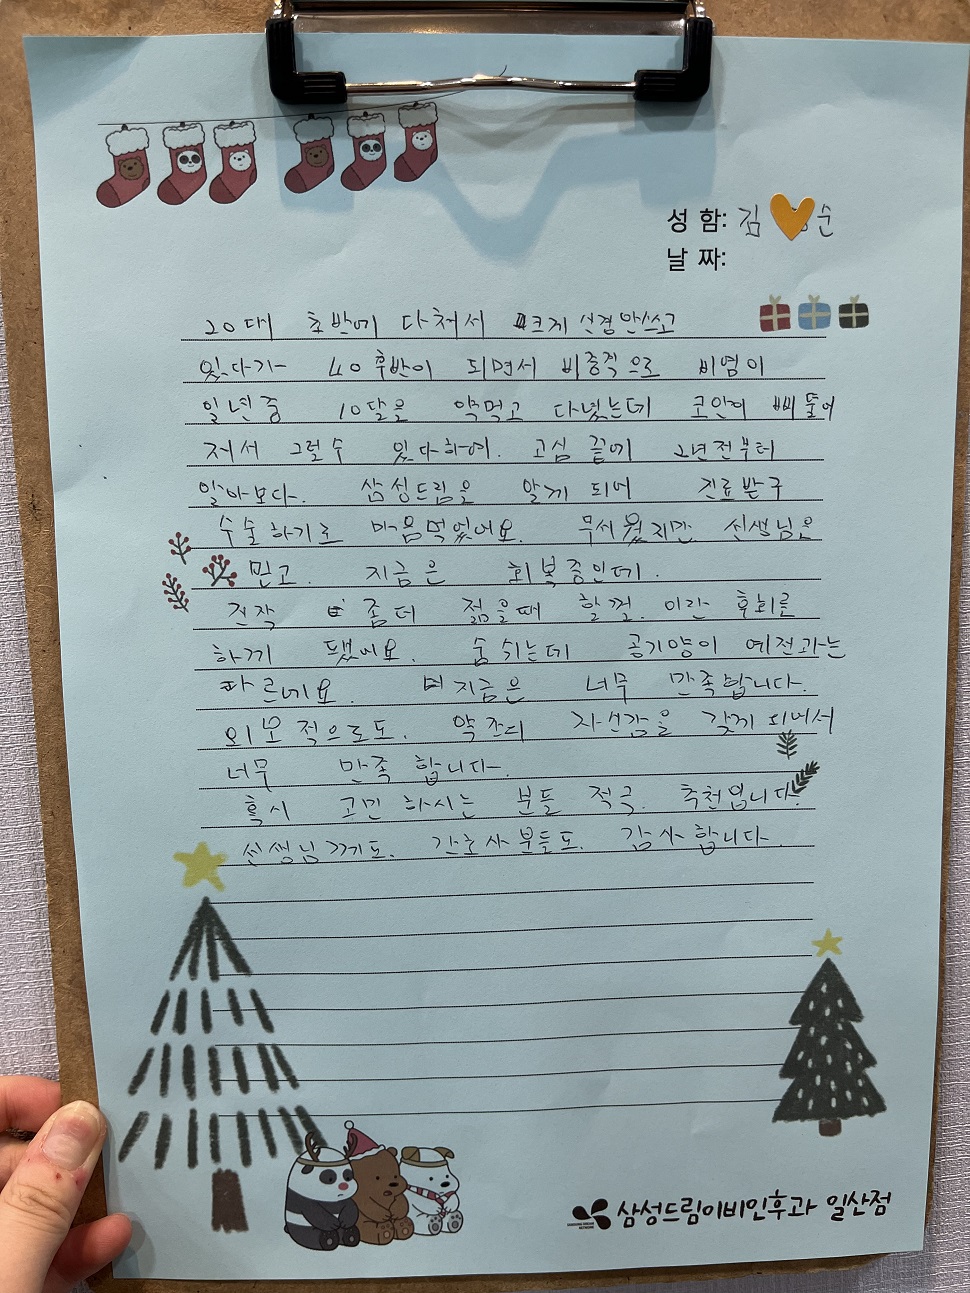 성 함: 김 순
날 짜:
20대 초반에 다쳐서 크게 신경안쓰고
있다가 40후반이 되면서 비중격으로 비염이
일년중 10달을 약먹고 다녔는데 코안이 삐뚤어
져서 그럴수 있다하여. 고심 끝에 2년전부터
알아보다. 삼성드림을 알게 되어 진료받구
수술하기로 마음먹었어요. 무서웠지만 선생님을
믿고. 지금은 회복중인데.
진작 좀더 젊을때 할껄. 이란 후회를
하게 됐어요. 숨쉬는데 공기양이 예전과는
따르네요. 지금은 너무 만족합니다.
외모적으로도. 약간더 자신감을 갖게 되어서
너무 만족 합니다.
혹시 고민 하시는 분들 적극. 추천입니다.
선생님께도. 간호사분들도. 감사합니다.
삼성드림이비인후과 일산점